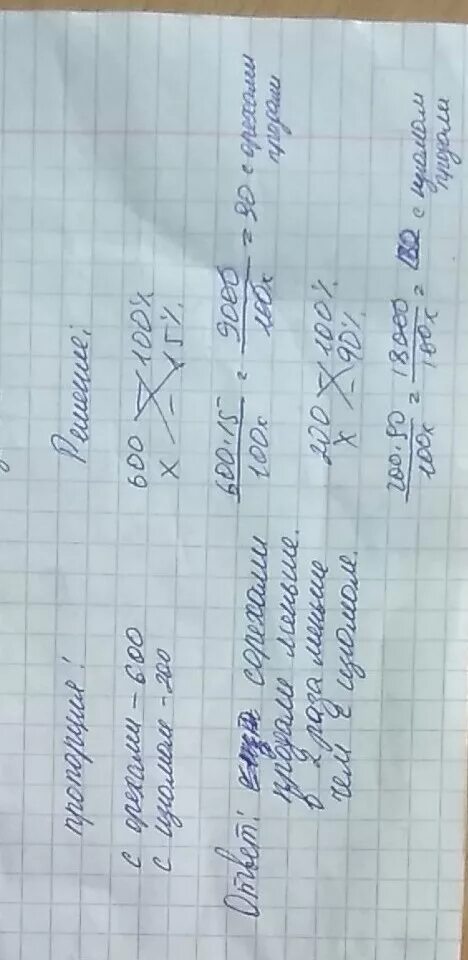 пропорция!
с орехами - 600
с изюмом - 200
Решение:
600 - 100%
x - 15%
600·15 / 100x = 9000 / 100x = 90 с орехами продали
200 - 100%
x - 90%
200·90 / 100x = 18000 / 100x = 180 с изюмом продали
Ответ: сорехами
продали меньше.
в 2 раза меньше
чем с изюмом.